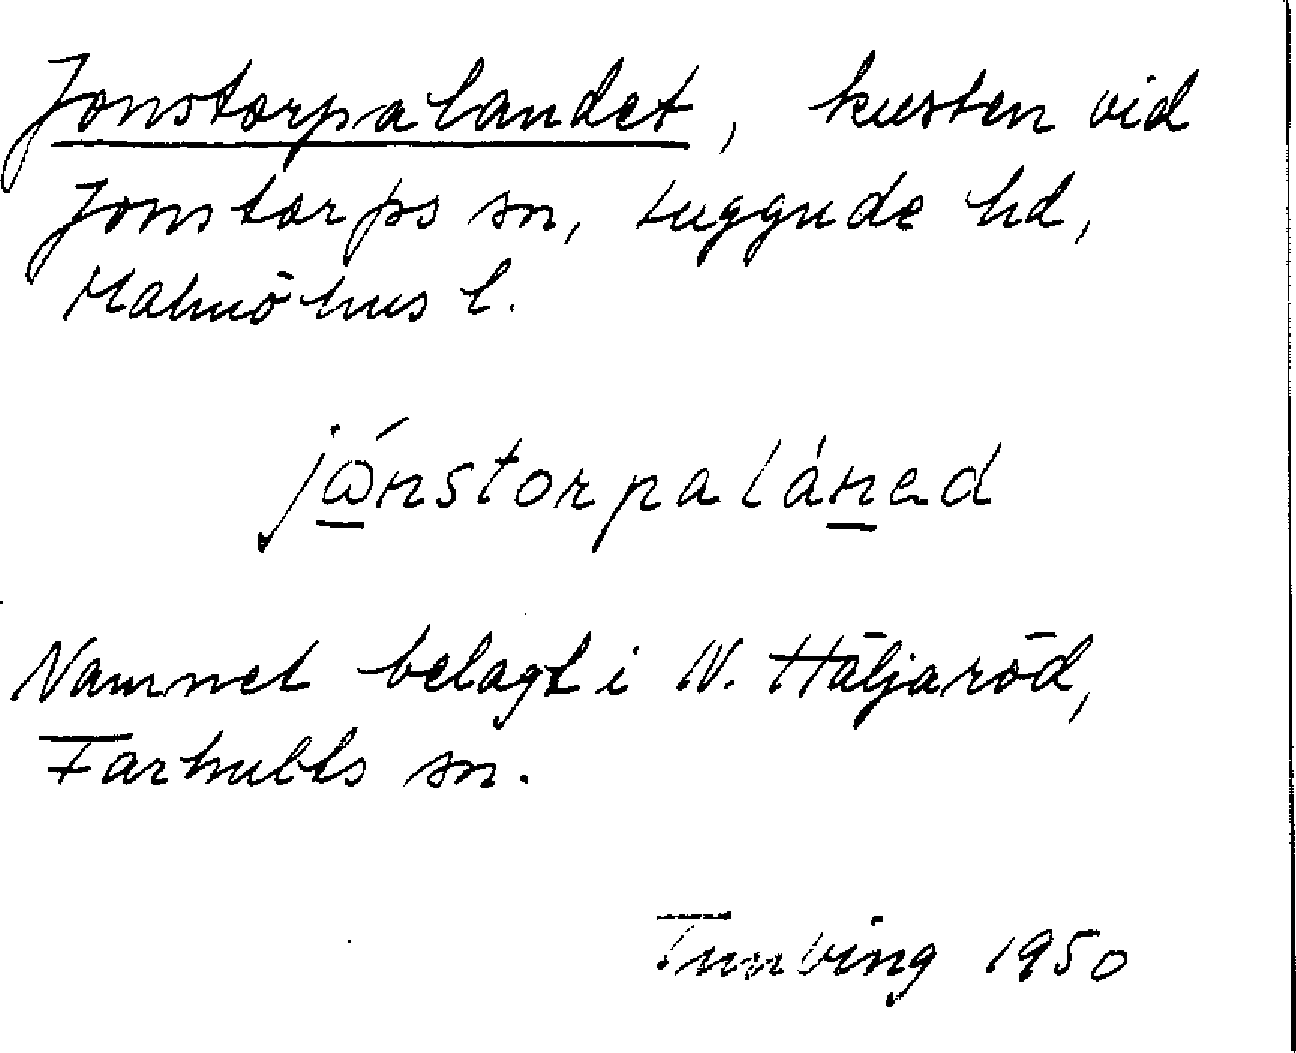 Jonstorpalandet, kusten vid
Jonstorps sn, Luggude hd,
Malmöhus l.
jǿnstorpaláned
Namnet belagt i N. Häljaröd,
Farhults sn.
Tunving 1950